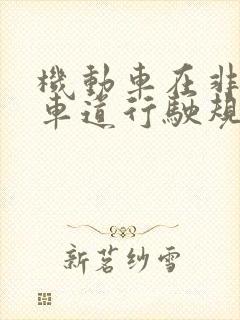 機動車在非
車道行駛規
新茗紗雪